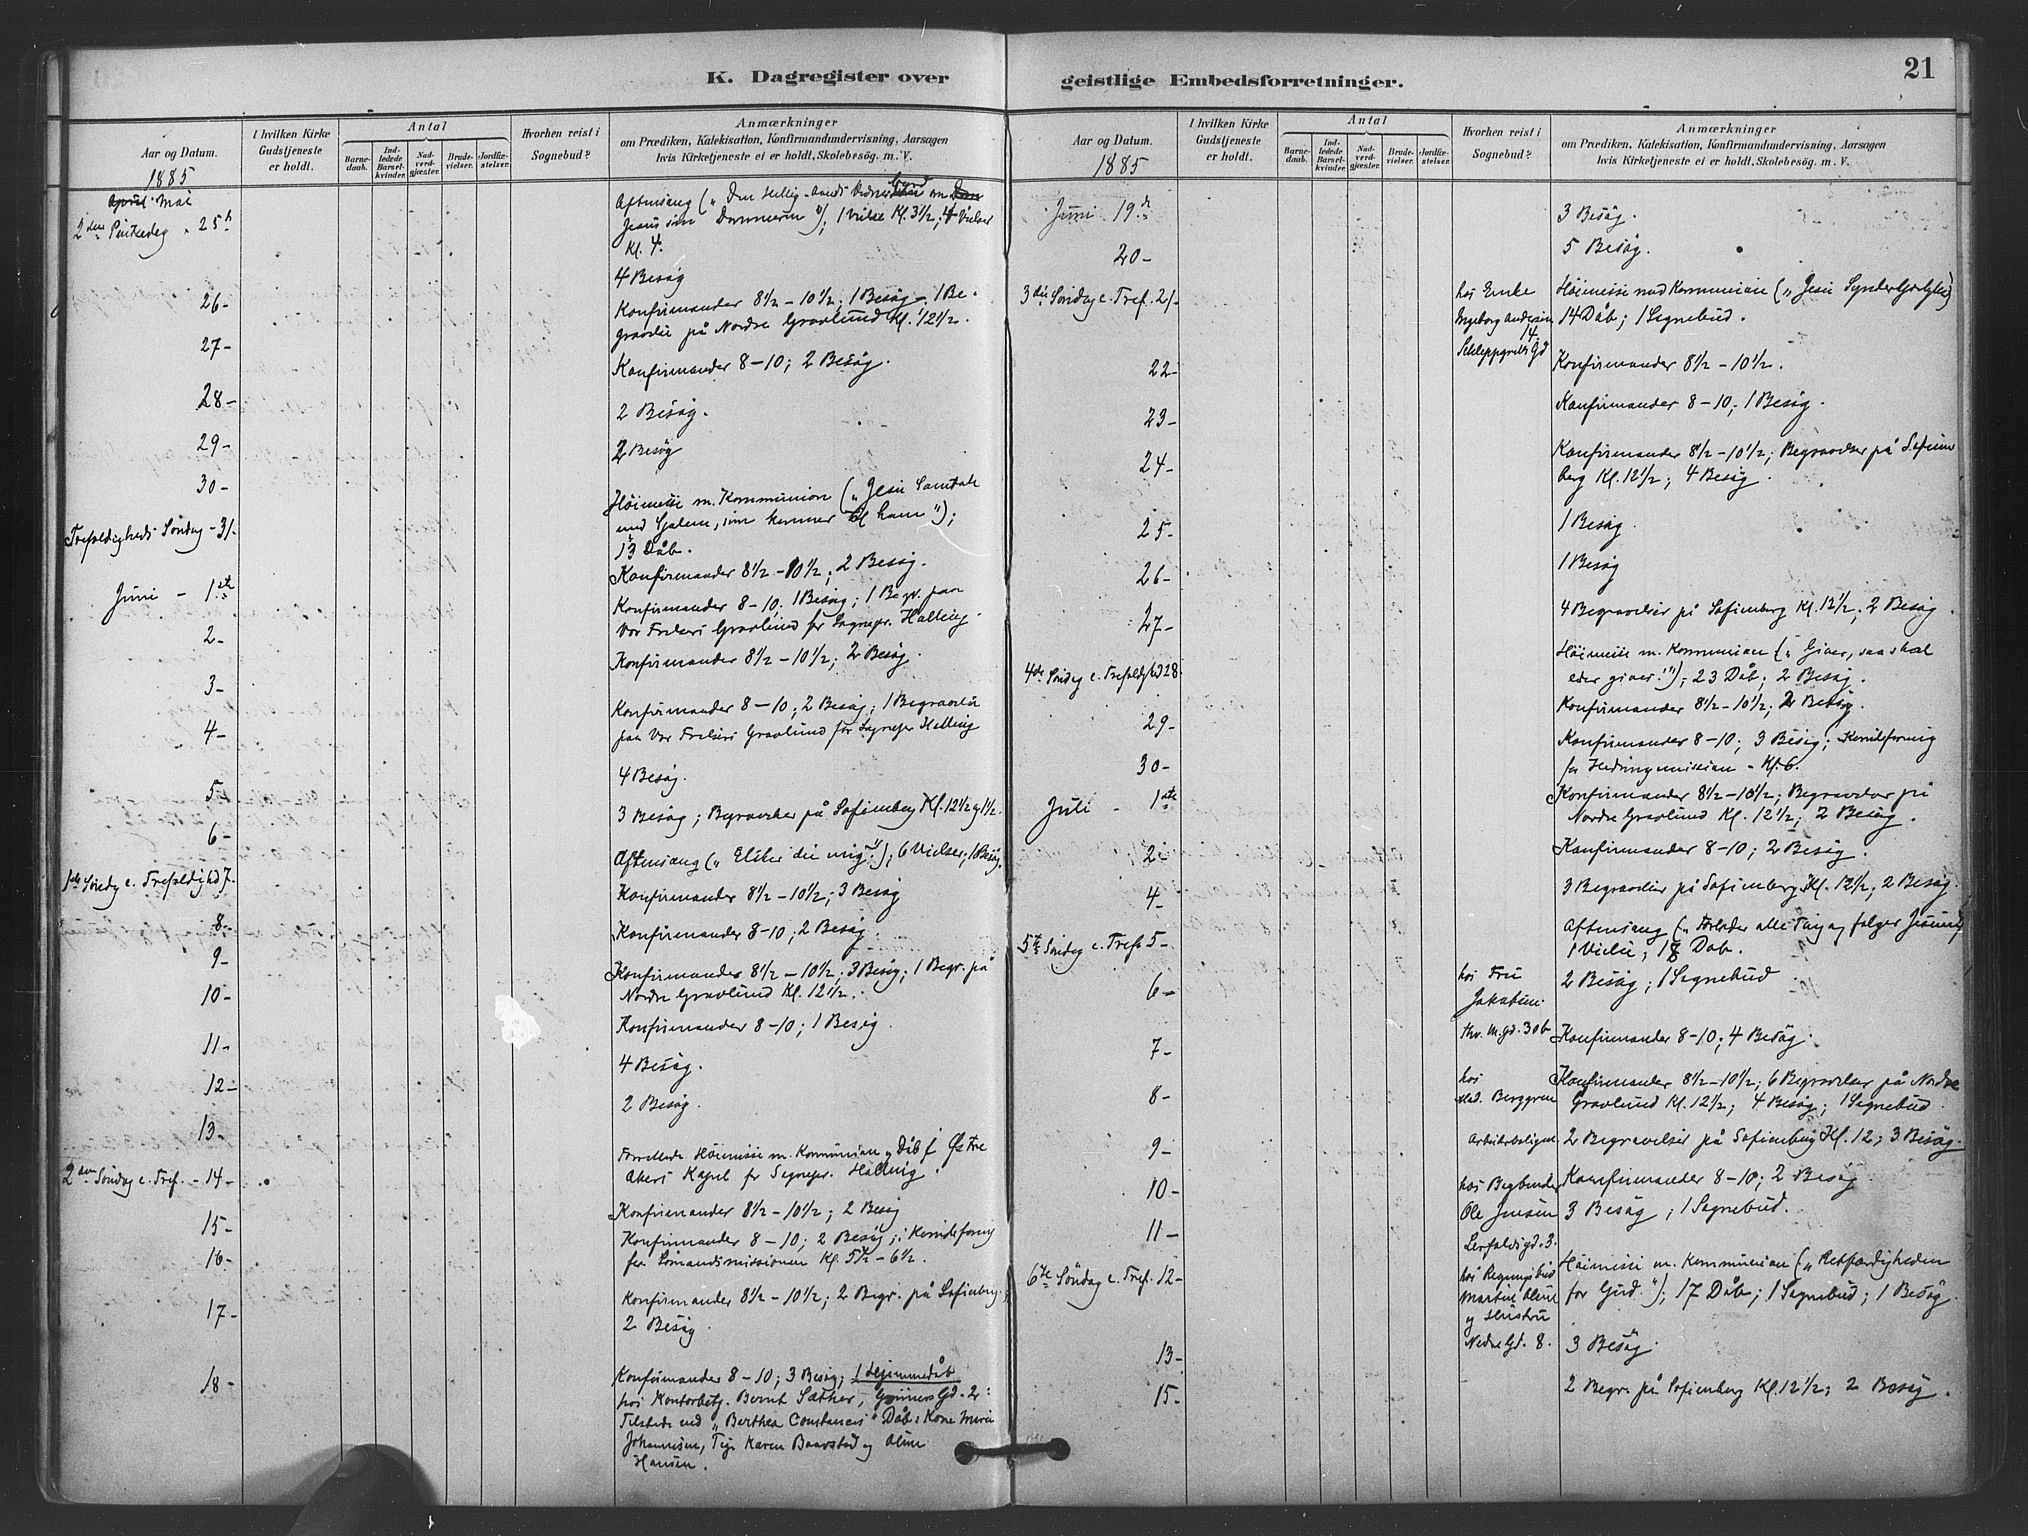 K. Dagregister over
geistlige Embedsforretninger.
21
Aar og Datum.
1885
I hvilken Kirke
Gudstjeneste
er holdt.
Antal
Barne-
daab.
Ind-
ledede
Barsel-
kvinder.
Nad-
verd-
gjæster.
Brude-
vielser.
Jordfæ-
stelser.
Hvorhen reist i
Sognebud?
Anmærkninger
om Prædiken, Katekisation, Konfirmandundervisning, Aarsagen
hvis Kirketjeneste ei er holdt, Skolebesøg. m. V.
April Mai
2den Pintsedag " 25de
Aftensang (" Den Hellig-Aands Vidnesbyrd om
Jesus som Dommeren "), 1 Vielse Kl. 3½, 4 Vielser
Kl. 4.
4 Besøg
26-
Konfirmander 8½ - 10½; 1 Besøg, 1 Be-
gravelse på Nordre Gravlund Kl. 12½.
27-
Konfirmander 8-10; 2 Besøg.
28-
2 Besøg.
29-
2 Besøg
30-
Høimesse m. Kommunion (" Jesu Samtale
med som kommer til ham ");
Trefoldigheds Søndag - 31.
13 Dåb.
Juni - 1ste
Konfirmander 8½ - 10½, 2 Besøg.
Konfirmander 8-10. 1 Besøg; 1 Begr. paa
Vor Frelsers Gravlund for Sognepr. Halling
2-
Konfirmander 8½ - 10½; 2 Besøg.
3-
Konfirmander 8-10; 2 Besøg; 1 Begravelse
paa Vor Frelsers Gravlund for Sognepr Halling
4-
4 Besøg.
5-
3 Besøg; Begravelser på Sofienberg Kl. 12½ og 1½.
6-
Aftensang (" Elsker du mig? "); 6 Vielser; 1 Besøg.
1ste Søndag e. Trefoldighed 7.
Konfirmander 8½ - 10½; 3 Besøg
8-
Konfirmander 8-10; 2 Besøg.
9-
Konfirmander 8½ - 10½; 3 Besøg; 1 Begr. på
Nordre Gravlund Kl. 12½.
10-
Konfirmander 8-10; 1 Besøg.
11-
4 Besøg.
12-
2 Besøg.
13.
Forrettede Høimesse m. Kommunion og Dåb i Østre
Akers Kapel for Sognepr. Halling.
2den Søndag e. Tref. - 14-
Konfirmander 8½ - 10½; 2 Besøg
15-
Konfirmander 8-10; 2 Besøg; Kvindeforening
for Sömandsmissionen Kl. 5½ - 6½.
16-
Konfirmander 8½ - 10½; 2 Begr. på Sofienberg,
2 Besøg.
17-
18-
Konfirmander 8-10; 3 Besøg; 1 Hjemmedåb
hos Kontorbetj. Bernt Sæther, Grüners Gd. 2:
Tilstede ved " Berthea Constances " Dåb: Kone Marie
Johannesen, Pige Karen Baarstad og Oline
Hansen.
Aar og Datum.
1885
I hvilken Kirke
Gudstjeneste
er holdt.
Antal
Barne-
daab.
Ind-
ledede
Barsel-
kvinder.
Nad-
verd-
gjæster.
Brude-
vielser.
Jordfæ-
stelser.
Hvorhen reist i
Sognebud?
Anmærkninger
om Prædiken, Katekisation, Konfirmandundervisning, Aarsagen
hvis Kirketjeneste ei er holdt, Skolebesøg. m. V.
Juni 19de
3 Besøg.
20-
5 Besøg.
3die Søndag e. Tref. 21-
hos Enke
Ingeborg Andersen
14
Schleppgrells Gd
Høimesse med Kommunion (" Jesu Synderkjærlighed)
14 Dåb; 1 Sognebud.
22-
Konfirmander 8½ - 10½.
23-
Konfirmander 8-10; 1 Besøg.
24-
Konfirmander 8½ - 10½; Begravelser på Sofien
berg Kl. 12½; 4 Besøg.
25-
1 Besøg
26-
1 Besøg
27-
4 Begravelser på Sofienberg Kl. 12½; 2 Besøg.
4de Søndag e. Trefoldighed 28.
Høimesse m. Kommunion (" Giver, saa skal
eder gives! "); 23 Dåb; 2 Besøg.
29-
Konfirmander 8½ - 10½; 2 Besøg.
30-
Konfirmander 8-10; 3 Besøg; Kvindeforening
for Hedningmissionen - Kl. 6.
Juli - 1ste
Konfirmander 8½ - 10½; Begravelser på
Nordre Gravlund Kl. 12½; 2 Besøg.
2-
Konfirmander 8-10; 2 Besøg.
4-
3 Begravelser på Sofienberg Kl. 12½; 2 Besøg.
5te Søndag e. Tref 5-
Aftensang (" Forlader alle Ting og følger Jesum ")
1 Vielse, 17 Dåb.
6-
hos Fru
Jakobsen
thv. M. gd. 30b
2 Besøg; 1 Sognebud
7-
Konfirmander 8-10; 4 Besøg.
8-
hos
Mad. Berggren
Arbeiderboligen
Konfirmander 8½ - 10½; 6 Begravelser på Nordre
Gravlund Kl. 12½; 4 Besøg; 1 Sognebud
9-
2 Begravelser på Sofienberg Kl. 12; 3 Besøg.
10-
Konfirmander 8-10; 2 Besøg.
11-
hos Bogbinder
Ole Jensen
Lerfaldsgd. 3.
3 Besøg; 1 Sognebud.
6te Søndag e. Tref. 12-
hos
Martin Olsen
og Hustru
Nedre Gd. 8.
Høimesse m. Kommunion (" Retfærdigheden
for Gud. "); 17 Dåb; 1 Sognebud; 1 Besøg.
13-
3 Besøg.
15-
2 Begr. på Sofienberg Kl. 12½; 2 Besøg.